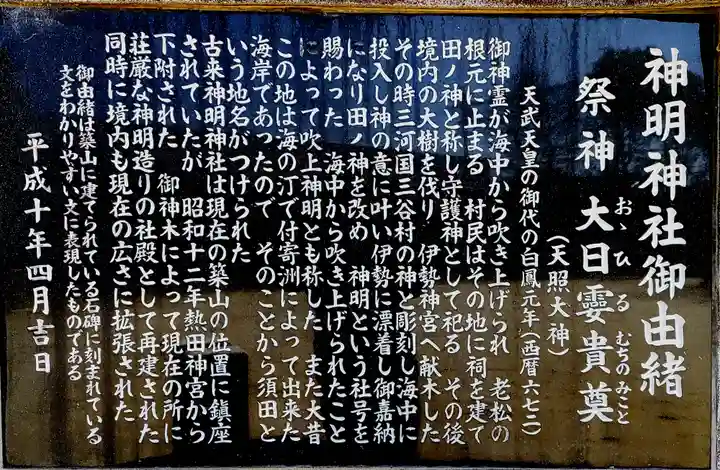 神明神社御由緒
祭神 大日孁貴奠
おゝひる むちのみこと
(天照大神)
天武天皇の御代の白鳳元年(西暦六七二)
御神霊が海中から吹き上げられ 老松の
根元に止まる 村民はその地に祠を建て
田ノ神と称し守護神として祀る その後
境内の大樹を伐り 伊勢神宮へ献木した
その時三河国三谷村の神と彫刻し海中に
投入し神の意に叶い伊勢に漂着し御嘉納
になり田ノ神を改め 神明という社号を
賜わった 海中から吹き上げられたこと
によって吹上神明とも称した また大昔
この地は海の汀で付寄洲によって出来た
海岸であったので そのことから須田と
いう地名がつけられた
古来神明神社は現在の築山の位置に鎮座
されていたが 昭和十二年熱田神宮から
下附された 御神木によって現在の所に
荘厳な神明造りの社殿として再建された
同時に境内も現在の広さに拡張された
御由緒は築山に建てられている石碑に刻まれている
文をわかりやすい文に表現したものである
平成十年四月吉日